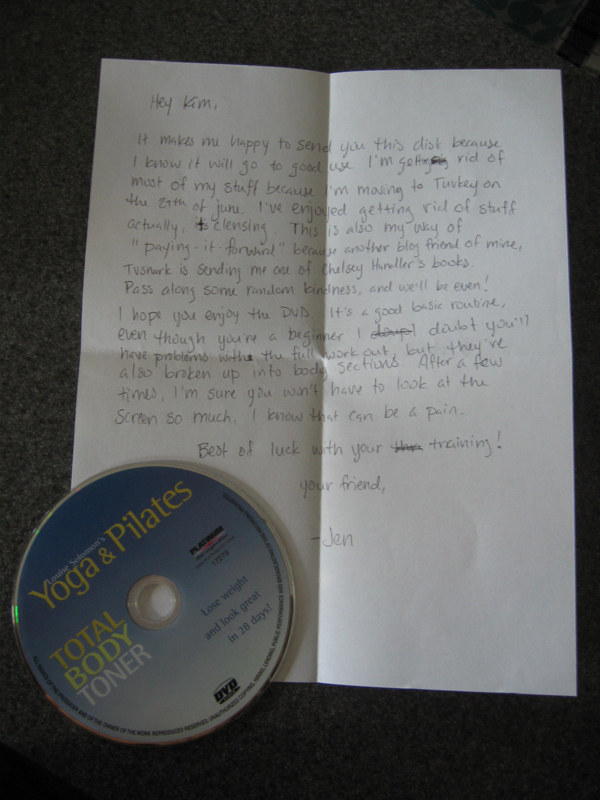 Hey Kim,
It makes me happy to send you this disk because
I know it will go to good use. I'm getting rid of
most of my stuff because I'm moving to Turkey on
the 29th of june. I've enjoyed getting rid of stuff
actually, clensing. This is also my way of
"paying-it-forward" because another blog friend of mine,
Tvsnark is sending me one of Chelsey Handler's books.
Pass along some random kindness, and we'll be even!
I hope you enjoy the DVD. It's a good basic routine,
even though you're a beginner I doubt you'll
have problems with the full work out, but they're
also broken up into body sections. After a few
times, I'm sure you won't have to look at the
screen so much. I know that can be a pain.
Best of luck with your training!
your friend,
-Jen
Louise Solomon's
Yoga & Pilates
TOTAL
BODY
TONER
PLATINUM
Lose weight
and look great
in 28 days!
DVD